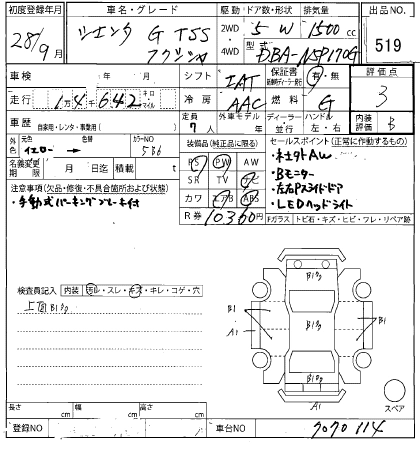 初度登録年月 車名・グレード 駆動 ドア数・形状 排気量 出品NO.
28/9月 シエンタ G TSS 2WD 5 W 1500cc 519
4WD 型式 DBA-NSP170G
車検 年 月 シフト IAT 保証書 有・無 評価点
走行 1万4千642 キロ マイル 冷房 AAC 燃料 G 3
車歴 自家用・レンタ・事業用( ) 定員 7人 外車モデル 年 ディーラー 並行 ハンドル 左・右 内装評価 B
外色 元色 イエロー 色替 カラーNO 5B6 装備品(純正品に限る) セールスポイント(正常に作動するもの)
名義変更期限 月 日 積載 t PS PW AW
・Bモニター
注意事項(欠品・修復・不具合箇所および状態) SR TV ナビ ・左右Pスライドドア
・手動式パーキングブレーキ付 カワ エアB ABS ・LEDヘッドライト
R券 10360 Fガラス トビ石・キズ・ヒビ・フレ・リペア跡
検査員記入 内装 汚れ・スレ・キズ・キレ・コゲ・穴
B1ク
B1 B1
A1
B1ク
B1ク
A1
スペア
長さ cm 幅 cm 高さ cm
登録NO 車台NO 7070114